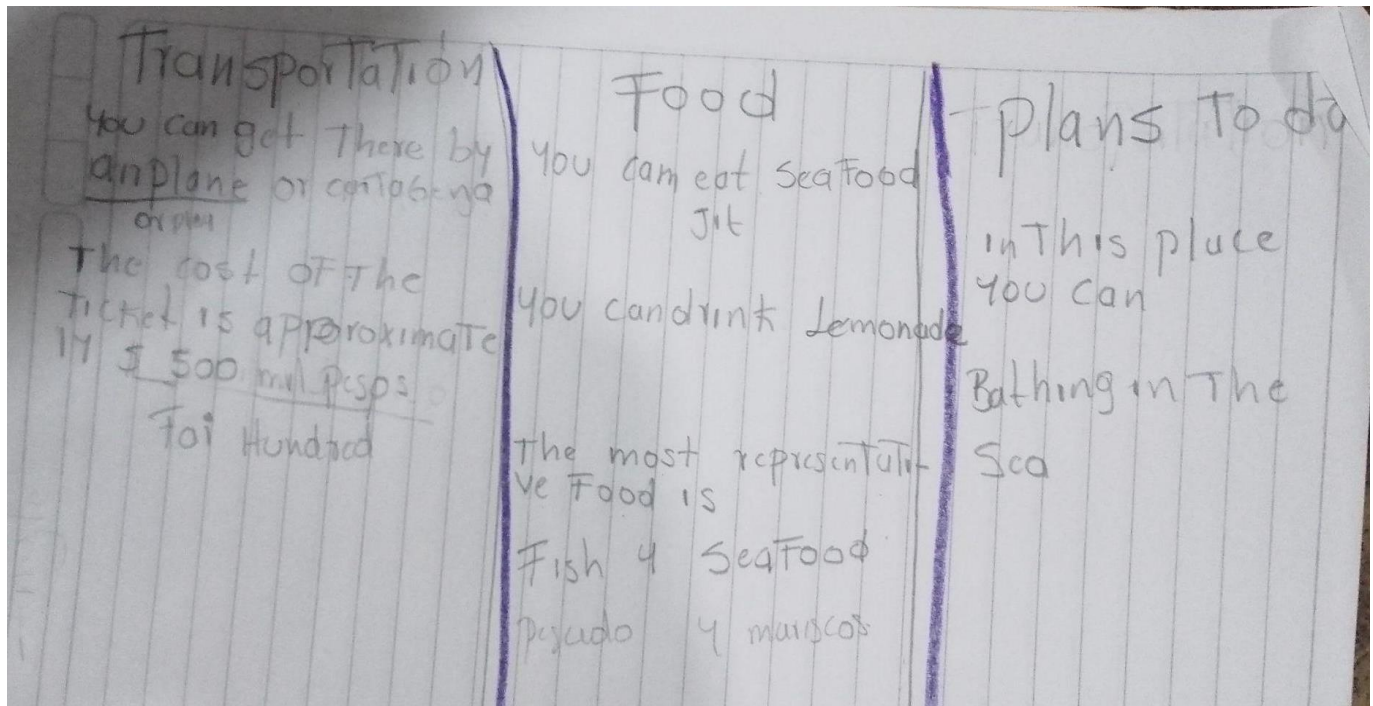 Transportation
You can get There by
anplane or cartagena
The cost of The
Ticket is approximate
ly $ 500 mil pesos
Foi Hundred
Food
You cam eat SeaFood
Jit
You can drink Lemonade
The most representati
ve Food is
Fish y SeaFood
pescado y mariscos
Plans To do
in This place
You can
Bathing in The
Sea